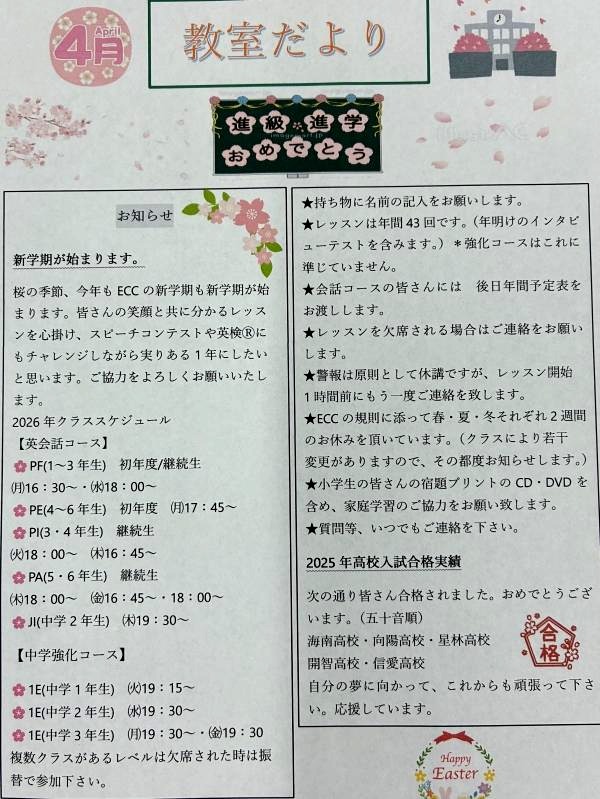 April
4月
教室だより
進級 進学
おめでとう
お知らせ
新学期が始まります。
桜の季節、今年も ECC の新学期も新学期が始
まります。皆さんの笑顔と共に分かるレッス
ンを心掛け、スピーチコンテストや英検Ⓡに
もチャレンジしながら実りある 1 年にしたい
と思います。ご協力をよろしくお願いいたし
ます。
2026 年クラススケジュール
【英会話コース】
PF(1~3 年生) 初年度/継続生
㈪16:30~・㈬18:00~
PE(4~6 年生) 初年度 ㈪17:45~
PI(3・4 年生) 継続生
㈫18:00~ ㈭16:45~
PA(5・6 年生) 継続生
㈭18:00~ ㈮16:45~・18:00~
JI(中学 2 年生) ㈭19:30~
【中学強化コース】
1E(中学 1 年生) ㈫19:15~
1E(中学 2 年生) ㈬19:30~
1E(中学 3 年生) ㈪19:30~・㈮19:30
複数クラスがあるレベルは欠席された時は振
替で参加下さい。
★持ち物に名前の記入をお願いします。
★レッスンは年間 43 回です。(年明けのインタビ
ューテストを含みます。)*強化コースはこれに
準じていません。
★会話コースの皆さんには 後日年間予定表を
お渡しします。
★レッスンを欠席される場合はご連絡をお願い
します。
★警報は原則として休講ですが、レッスン開始
1 時間前にもう一度ご連絡を致します。
★ECC の規則に添って春・夏・冬それぞれ 2 週間
のお休みを頂いています。(クラスにより若干
変更がありますので、その都度お知らせします。)
★小学生の皆さんの宿題プリントの CD・DVD を
含め、家庭学習のご協力をお願い致します。
★質問等、いつでもご連絡を下さい。
2025 年高校入試合格実績
次の通り皆さん合格されました。おめでとうござ
います。(五十音順)
海南高校・向陽高校・星林高校
開智高校・信愛高校
合格
自分の夢に向かって、これからも頑張って下さ
い。応援しています。
Happy
Easter